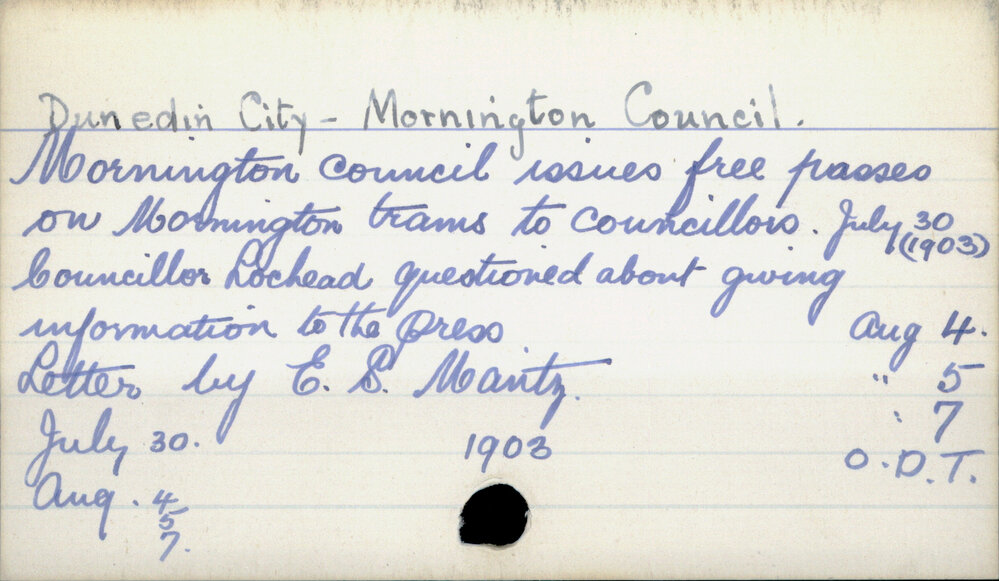 Dunedin City - Mornington Council.
Mornington council issues free passes
on Mornington trams to councillors. July 30
(1903)
Councillor Lochead questioned about giving
information to the press Aug 4.
Letter by E. S. Mantz. " 5
" 7
July 30. 1903 O.D.T.
Aug. 4
5
7.